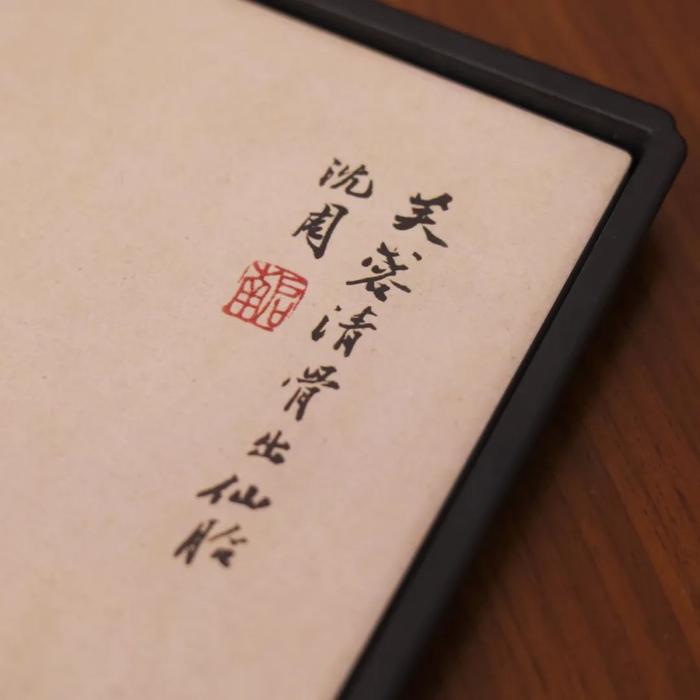 芙蓉清骨出仙胎
沈周
啟南